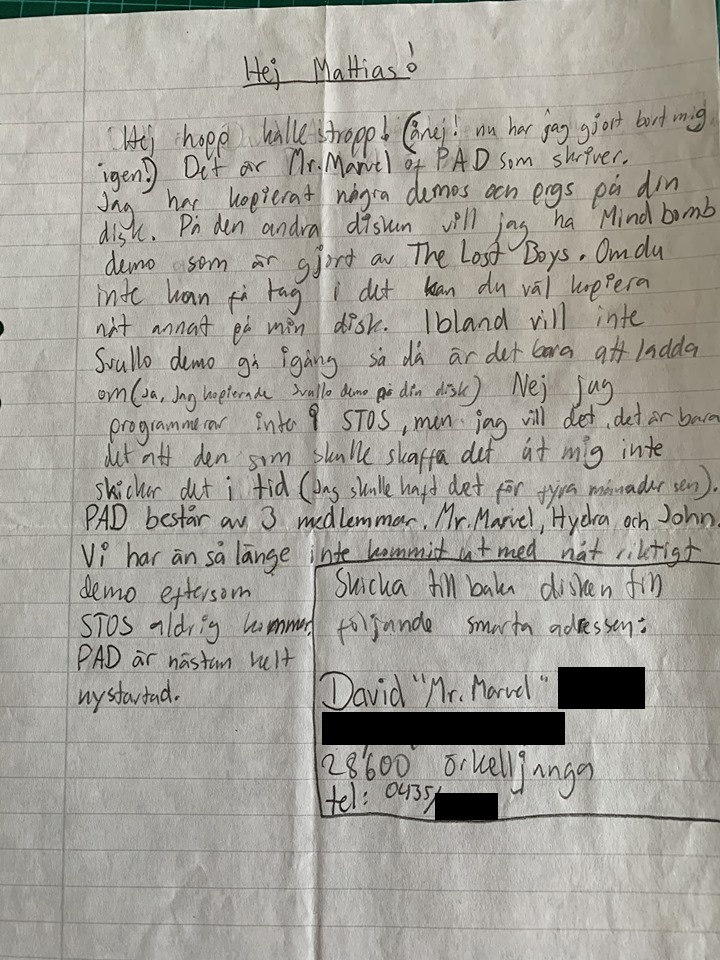 Hej Mattias!
Hej hopp kallestropp! (ånej! nu har jag gjort bort mig
igen!) Det är Mr. Marvel of PAD som skriver.
Jag har kopierat några demos och prgs på din
disk. På den andra disken vill jag ha Mindbomb
demo som är gjort av The Lost Boys. Om du
inte kan få tag i det kan du väl kopiera
nåt annat på min disk. Ibland vill inte
Svullo demo gå igång så då är det bara att ladda
om (Ja, Jag kopierade Svullo demo på din disk) Nej jag
programmerar inte i STOS, men jag vill det, det är bara
det att den som skulle skaffa det åt mig inte
skickar det i tid (Jag skulle haft det för fyra månader sen).
PAD består av 3 medlemmar. Mr. Marvel, Hydra och John.
Vi har än så länge inte kommit ut med nåt riktigt
demo eftersom
STOS aldrig kommer.
PAD är nästan helt
nystartad.
Skicka till baka disken till
följande smarta adressen:
David "Mr. Marvel"
28600 örkelljunga
tel: 0435/